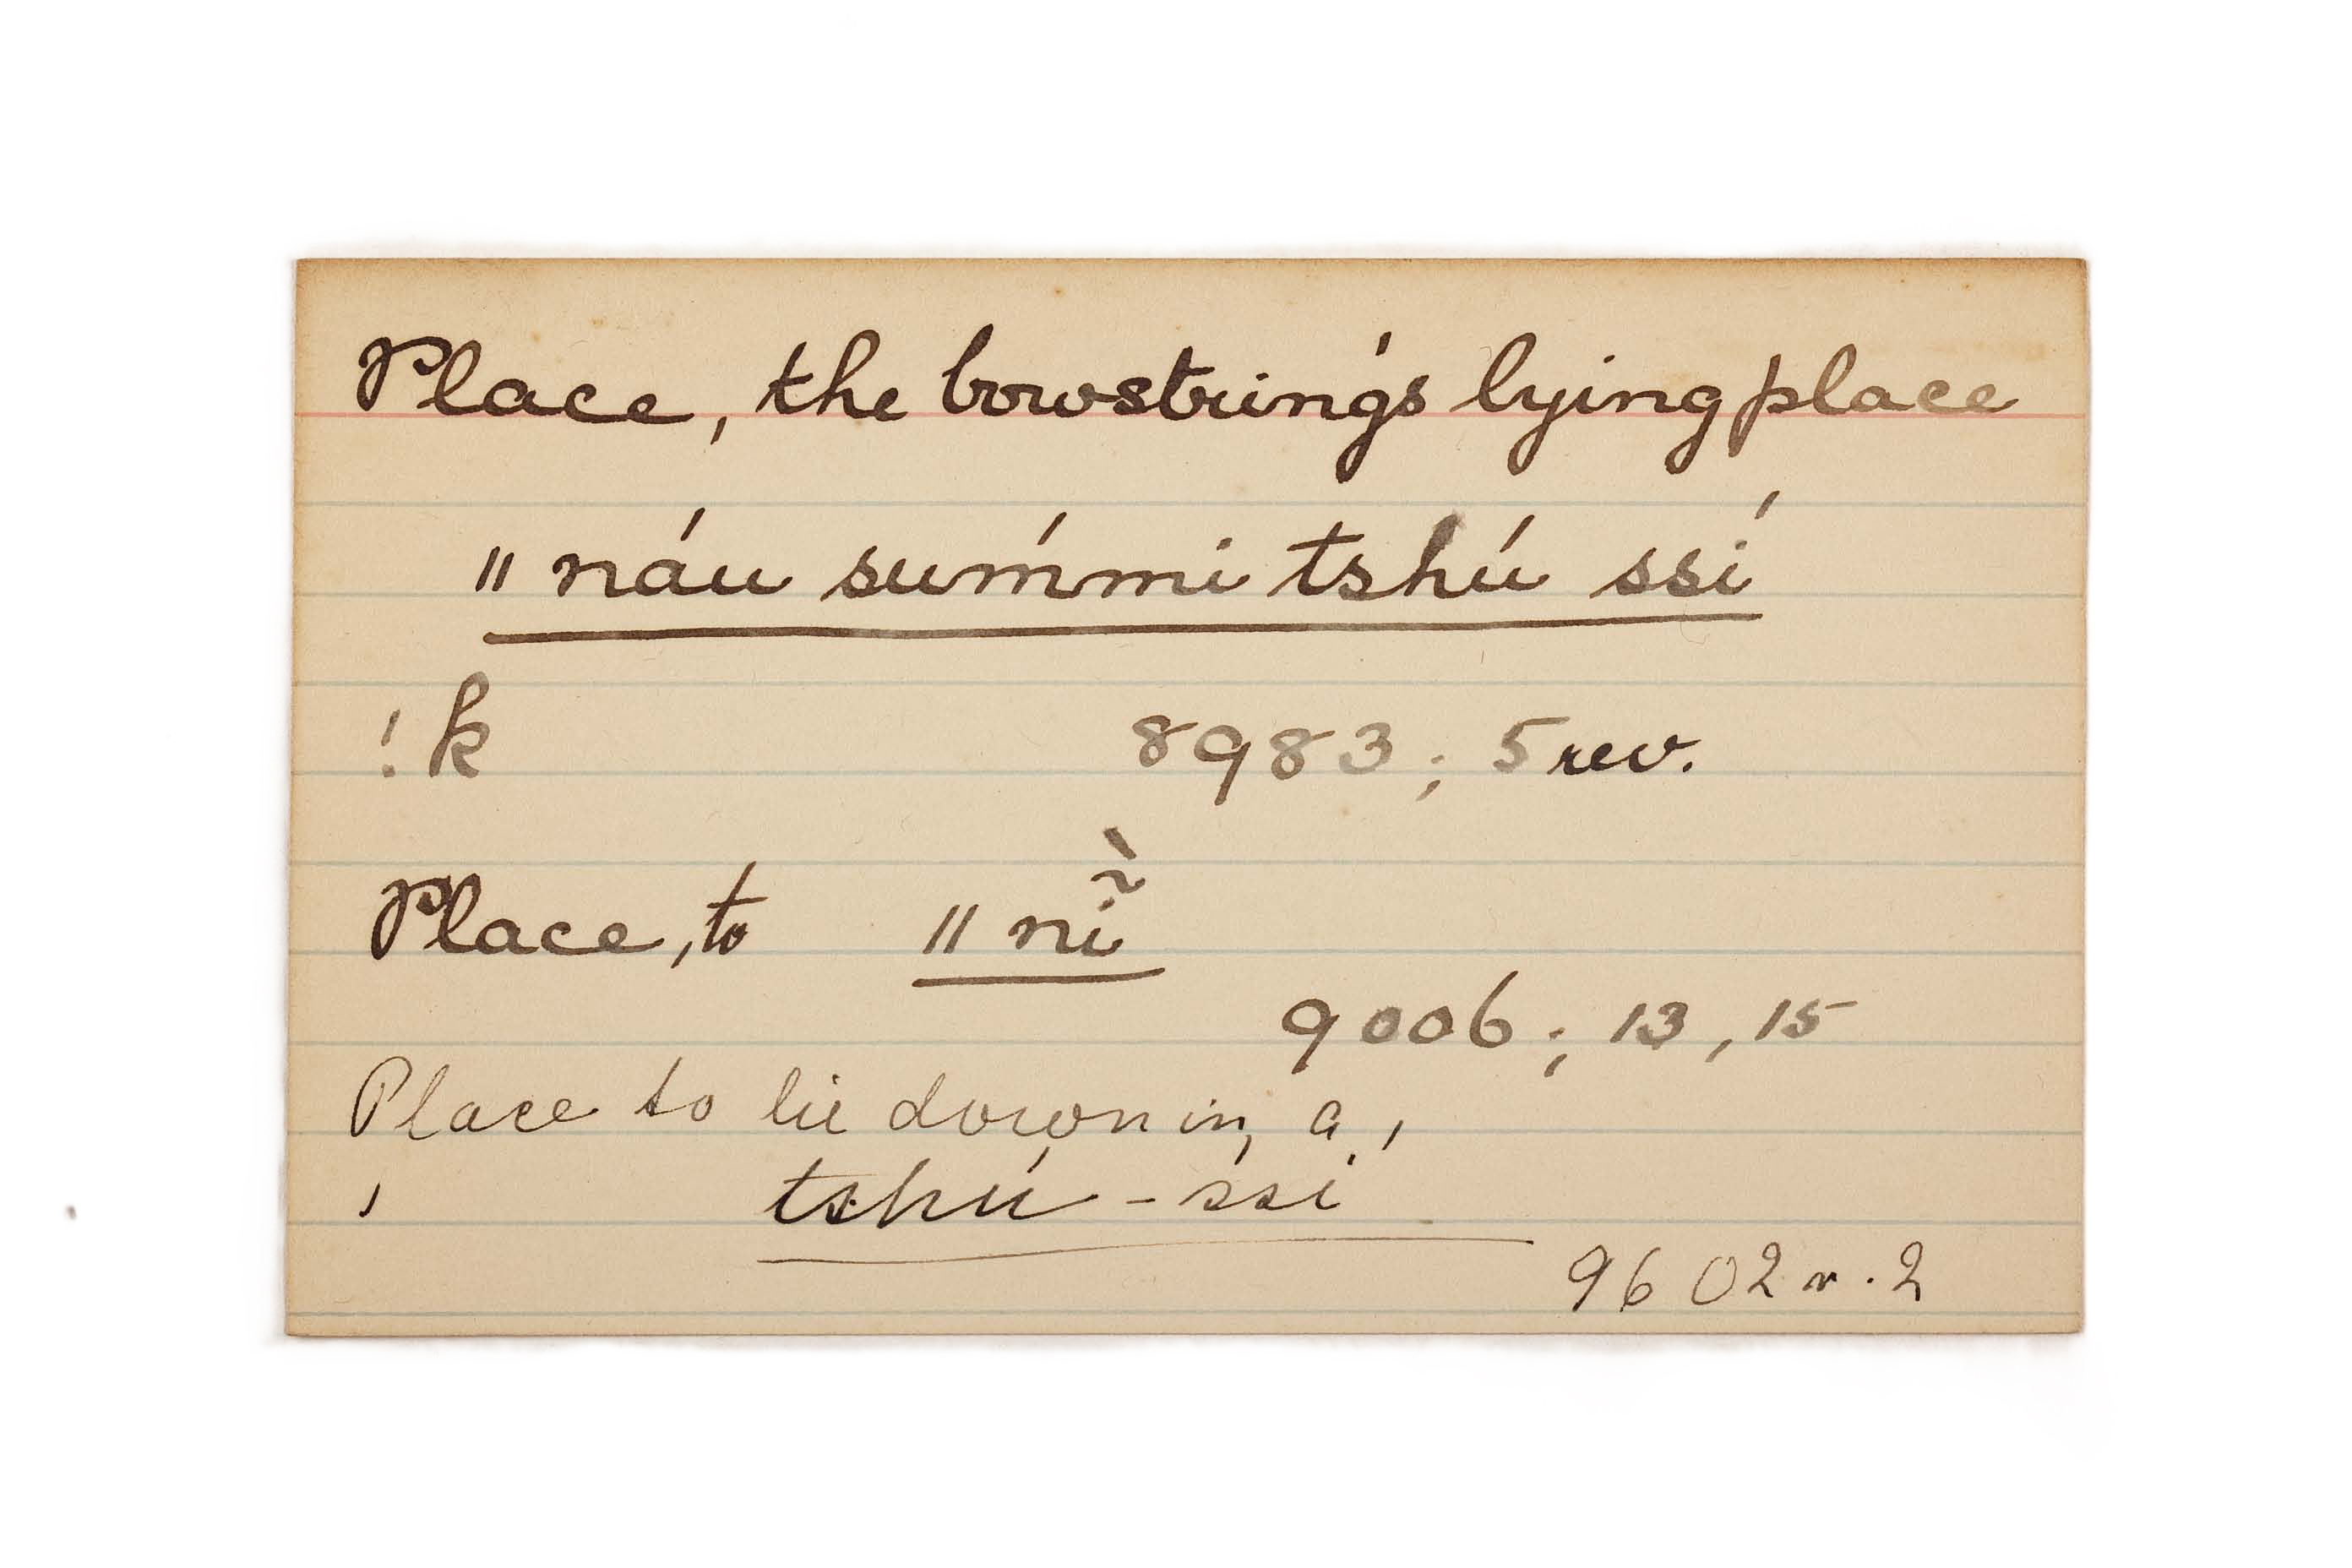 Place, the bowstring's lying place
ǁ náu súḿmi tshú ssí
! k 8983; 5 rev.
Place, to ǁ nĩ̀
9006; 13, 15
Place to lie down in, a,
, tshú - ssí
9602 r. 2